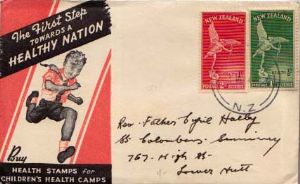 The First Step
TOWARDS A
HEALTHY NATION
NEW ZEALAND
NEW ZEALAND
N.Z.
Rev. Father
St Columbans
767. High St.
Lower Hutt
Buy
HEALTH STAMPS for
CHILDREN'S HEALTH CAMPS